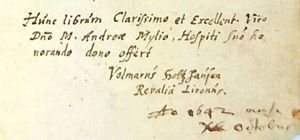 Hunc librum Clarissimo et Excellent. Viro
Dño M. Andreæ Mylio, Hospiti suo ho
norando dono offert
Volmarus
Revaliâ Livonus.
Ao 1642 mense
Octobri